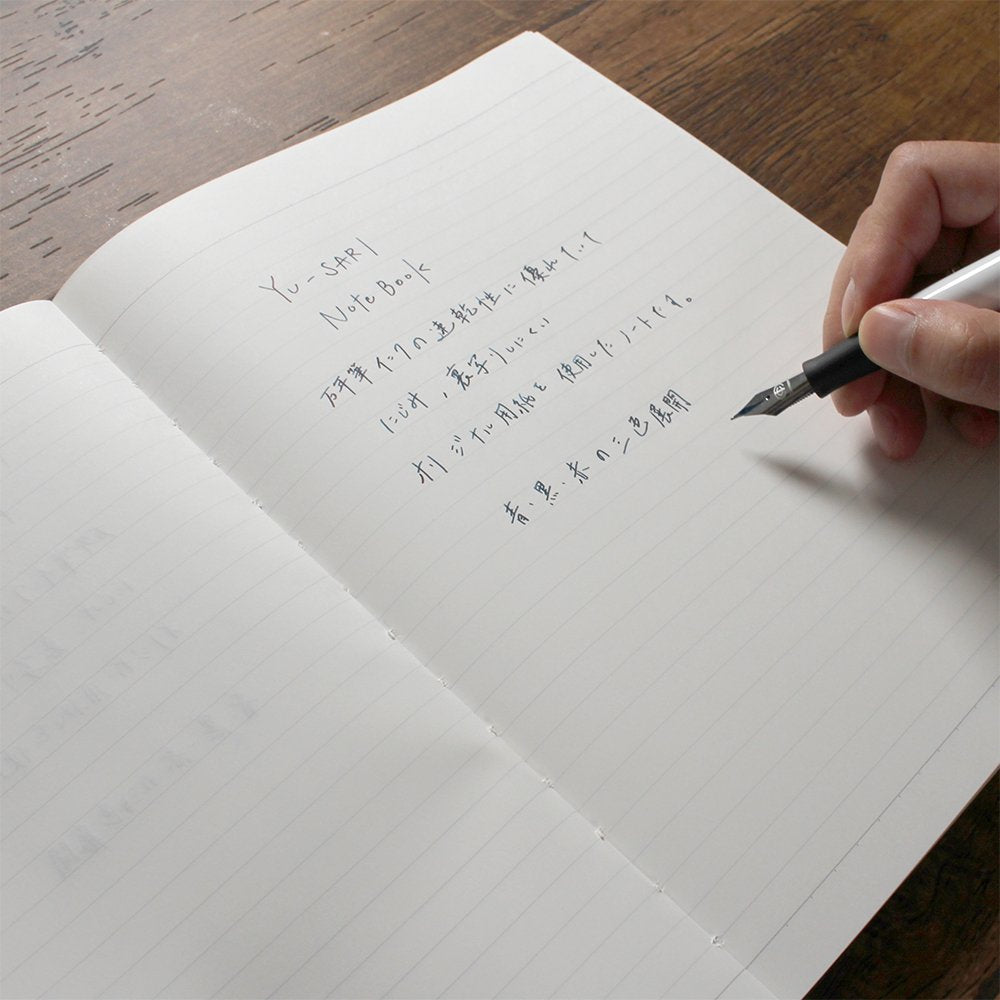 Yu-SARI
Note Book
万年筆インクの速乾性に優れていて
にじみ、裏写りしにくい
オリジナル用紙を使用したノートです。
青・黒・赤の三色展開